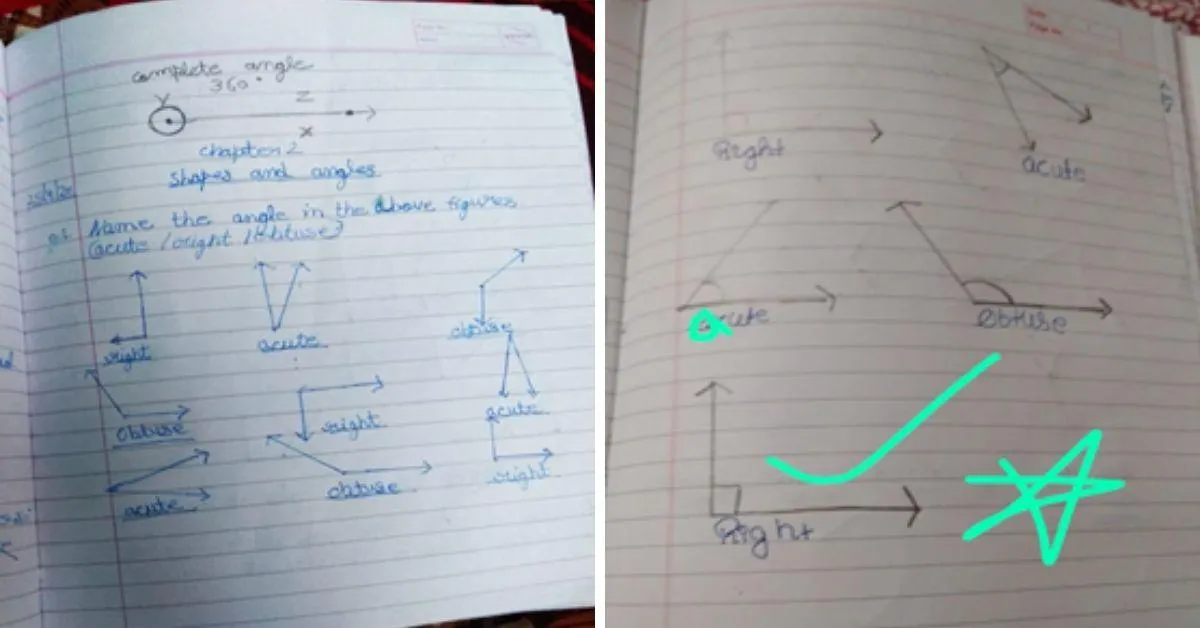 complete angle
360°
Y Z
X
chapter 2
Shapes and angles
Q.1 Name the angle in the above figures
(acute / right / obtuse)
right acute obtuse
obtuse right acute
acute obtuse right
Right acute
acute obtuse
Right